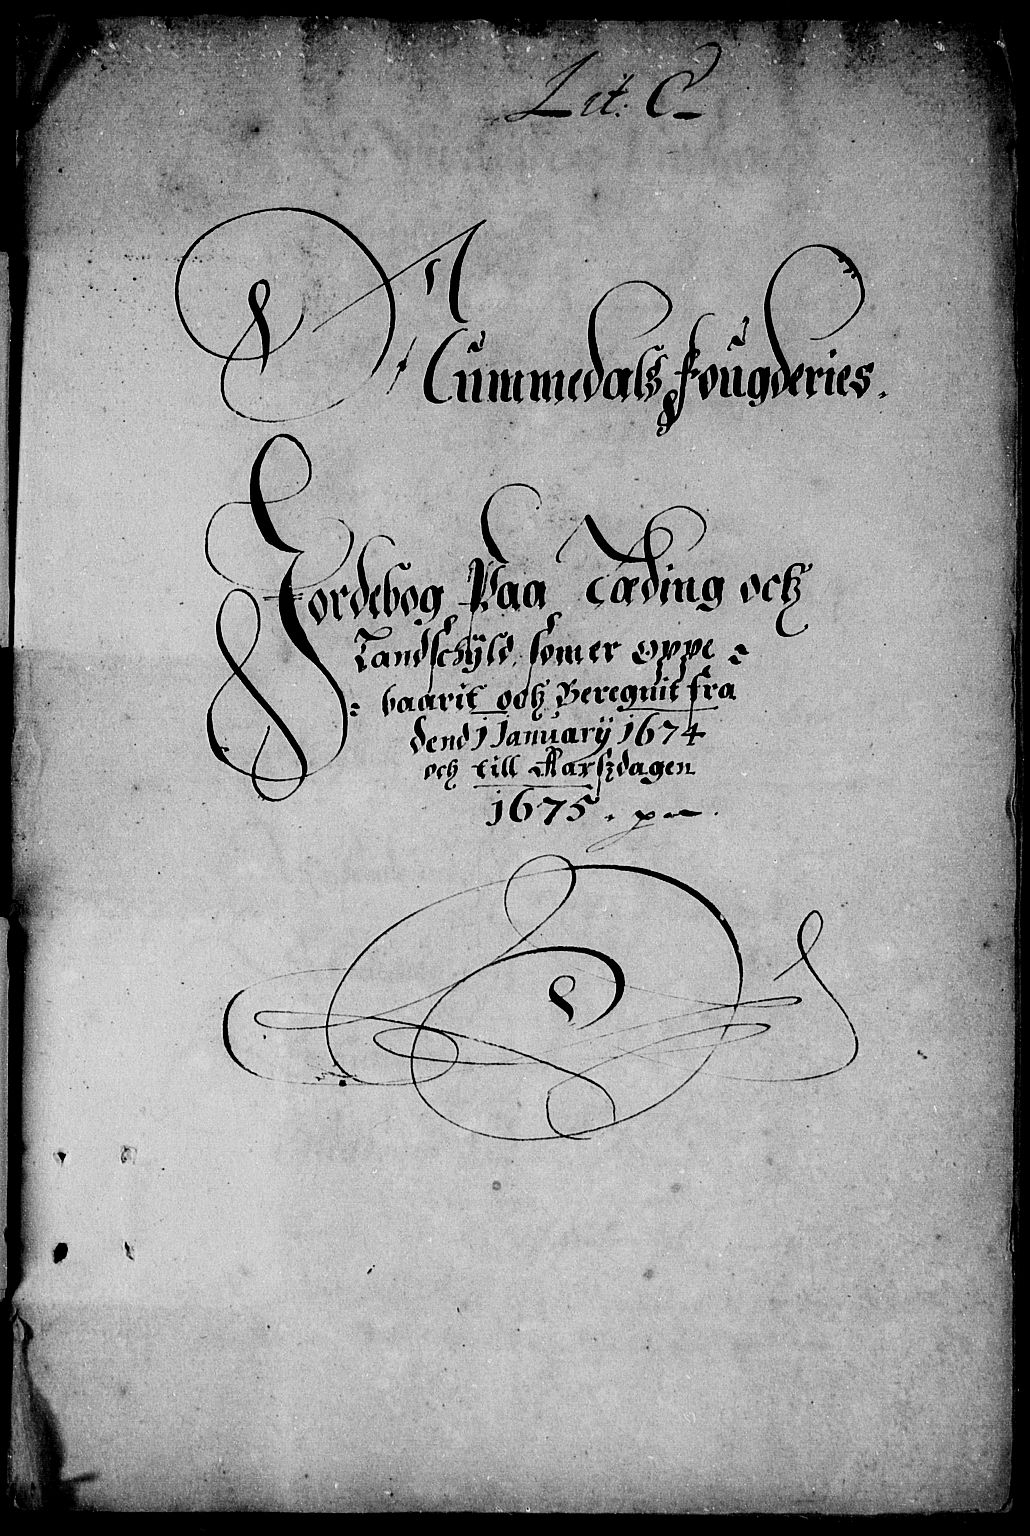 Lit. C
Nummedals fougderies.
Jordebog Paa Tæding och
Landschÿld somer oppe=
=baarit och Beregnit fra
dend 1 Januarÿ 1674
och till Aarszdagen
1675.